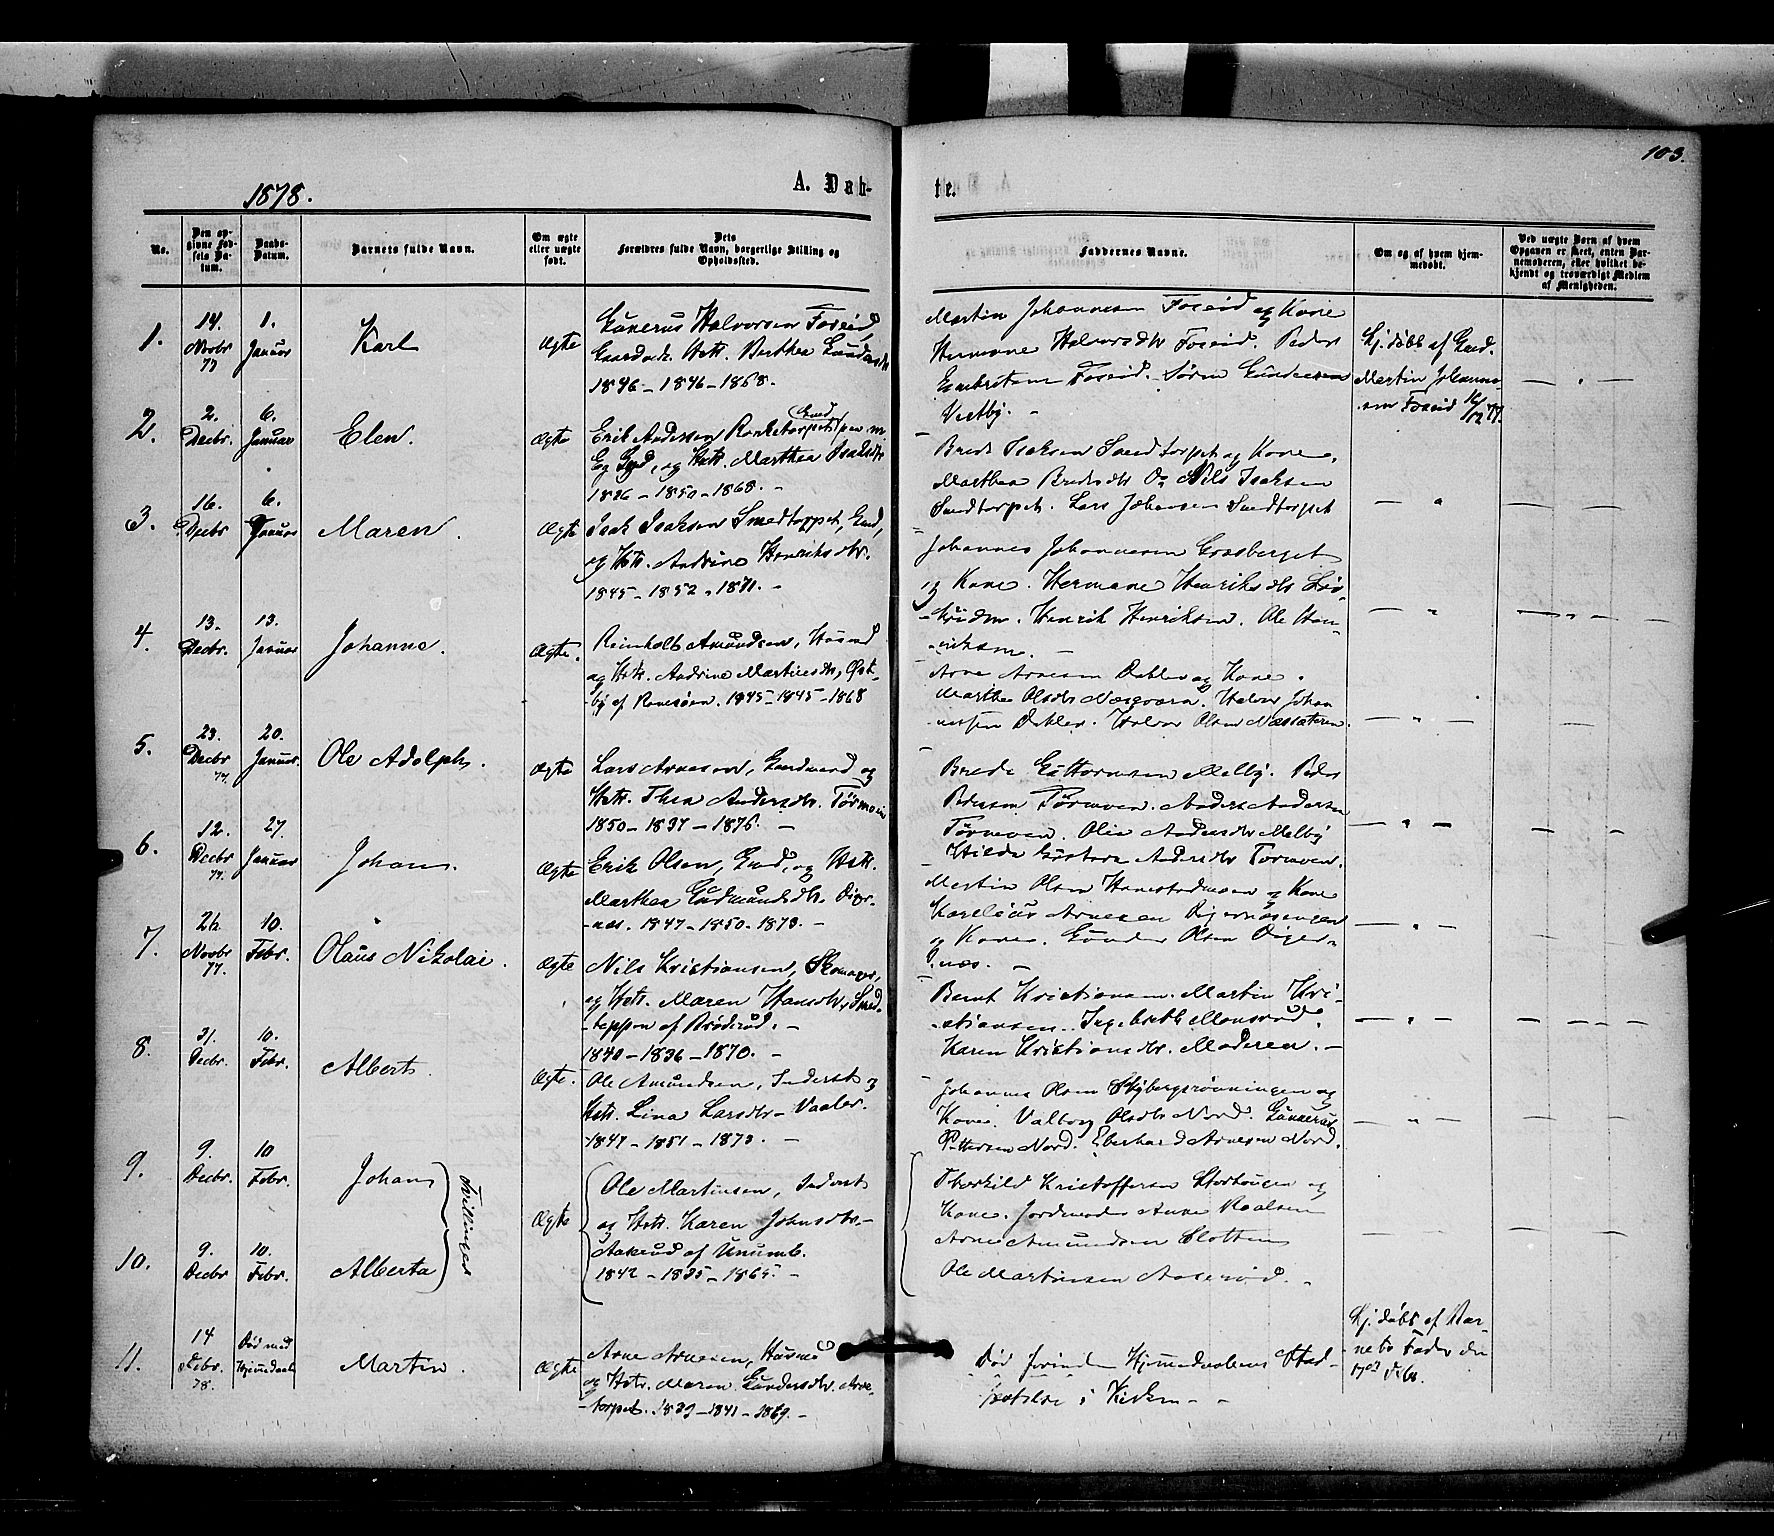 103.
1878.
A. Døb-
te.
No.
Den opgivne Fødsels Datum.
Daabs-Datum.
Barnets fulde Navn.
Om ægte eller uægte født.
Dets Forældres fulde Navn, borgerlige Stilling og Opholdssted.
Faddernes Navne.
Om og af hvem hjemmedøbt.
Ved uægte Børn af hvem Opgaven er skeet, enten Barnemoderen, eller hvilket bekjendt og troværdigt Medlem af Menigheden.
1.
14. Novbr 77
1. Januar
Karl
Ægte
Gunerus Halvorsen Foseid,
Gaardbr. Hstr. Berthea Gundersdtr
1846 - 1846 - 1868.
Martin Johannesen Foseid og Kone
Hermane Halvorsdtr Foseid. Peder
Engebretsen Foseid. Søren Gundersen
Vestby. -
Hj. døbt af Gmd.
Martin Johanne-
sen Foseid 16/12 77.
2.
2. Decbr.
6. Januar
Elen.
Ægte
Erik Andersen
og Hstr. Marthea Isaksdtr
1826 - 1850 - 1868. -
Brede Isaksen Smedtorpet og Kone.
Marthea Bredesdtr Nils Isaksen
Smedtorpet. Lars Johansen Smedtorpet
3.
16. Decbr
6. Januar
Maren.
Ægte
Isak Isaksen Smedtoppet, Gmd,
og Hstr. Andrine Henriksdtr.
1845 - 1852 - 1871. -
Johannes Johannesen Graaberget
og Kone. Hermane Henriksdtr
Henrik Henriksen. Ole Hen-
riksen. -
4.
13. Decbr.
13. Januar
Johanne.
Ægte.
Reinholt Amundsen, Husmd
og Hstr. Andrine Martinsdtr, Øst-
by af 1845 - 1845 - 1868
Arne Arnesen Dahlen og Kone.
Marthe Olsdtr Halvor Johan
nessen Dahlen. Halvor Olsen
5.
23. Decbr 77
20. Januar.
Ole Adolph.
Ægte
Lars Arnesen, Gaardmand og
Hstr. Thea Andersdtr. Tørmoen
1850 - 1837 - 1876. -
Brede Guttormsen Melby. Peder
Pedersen Tørmoen. Anders Andersen
Tørmoen. Olia Andersdtr Melby
Hilda Gustava Andersdtr Tørmoen.
6.
12. Decbr 77.
27. Januar
Johan.
Ægte
Erik Olsen, Gmd, og Hstr.
Marthea Gudmundsdtr. Diger-
næs. 1847 - 1850 - 1873. -
Martin Olsen og Kone
Karelius Arnesen
og Kone. Gunder Olsen Diger-
næs. -
7.
26. Novbr 77.
10. Febr.
Olaus Nikolai.
Ægte
Nils Kristiansen, Skomager,
og Hstr. Maren Hansdtr, Smed-
teppen af Brøderud. -
1840 - 1836 - 1870. -
Bernt Kristiansen. Martin Kri-
stiansen. Ingebreth Monsrud.
Karen Kristiansdtr. Moderen. -
8.
31. Decbr.
10. Febr.
Albert.
Ægte.
Ole Amundsen, Inderst og
Hstr. Lina Larsdtr - Vaaler.
1847 - 1851 - 1873. -
Johannes Olsen Skybergrønningen og
Kone. Valborg Olsdtr Nord. Gunnerus
Pettersen Nord. Eberhard Arnesen Nord.
9.
9. Decbr.
10 Febr.
Johan
Tvillinger
Ægte
Ole Martinsen, Inderst
og Hstr. Karen Johnsdtr. -
Aaserud af Unumb.
1842 - 1835 - 1865. -
Thorkild Kristoffersen Storhougen og
Kone. Jordmoder Anne Roalsen
Arne Amundsen Slotten
Ole Martinsen Aaserud. -
10.
9. Decbr
10. Febr.
Alberta
11.
14 Febr. 78.
Død med Hjemmedaab
Martin.
Ægte
Arne Arnesen, Husmd
og Hstr. Maren Gundersdtr. Arne-
torpet. 1839 - 1841 - 1869. -
Død forinden Hjemmedaabens Stad-
fæstelse i Kirken - -
Hj. døbt af Bar-
nets Fader den
17de Febr.